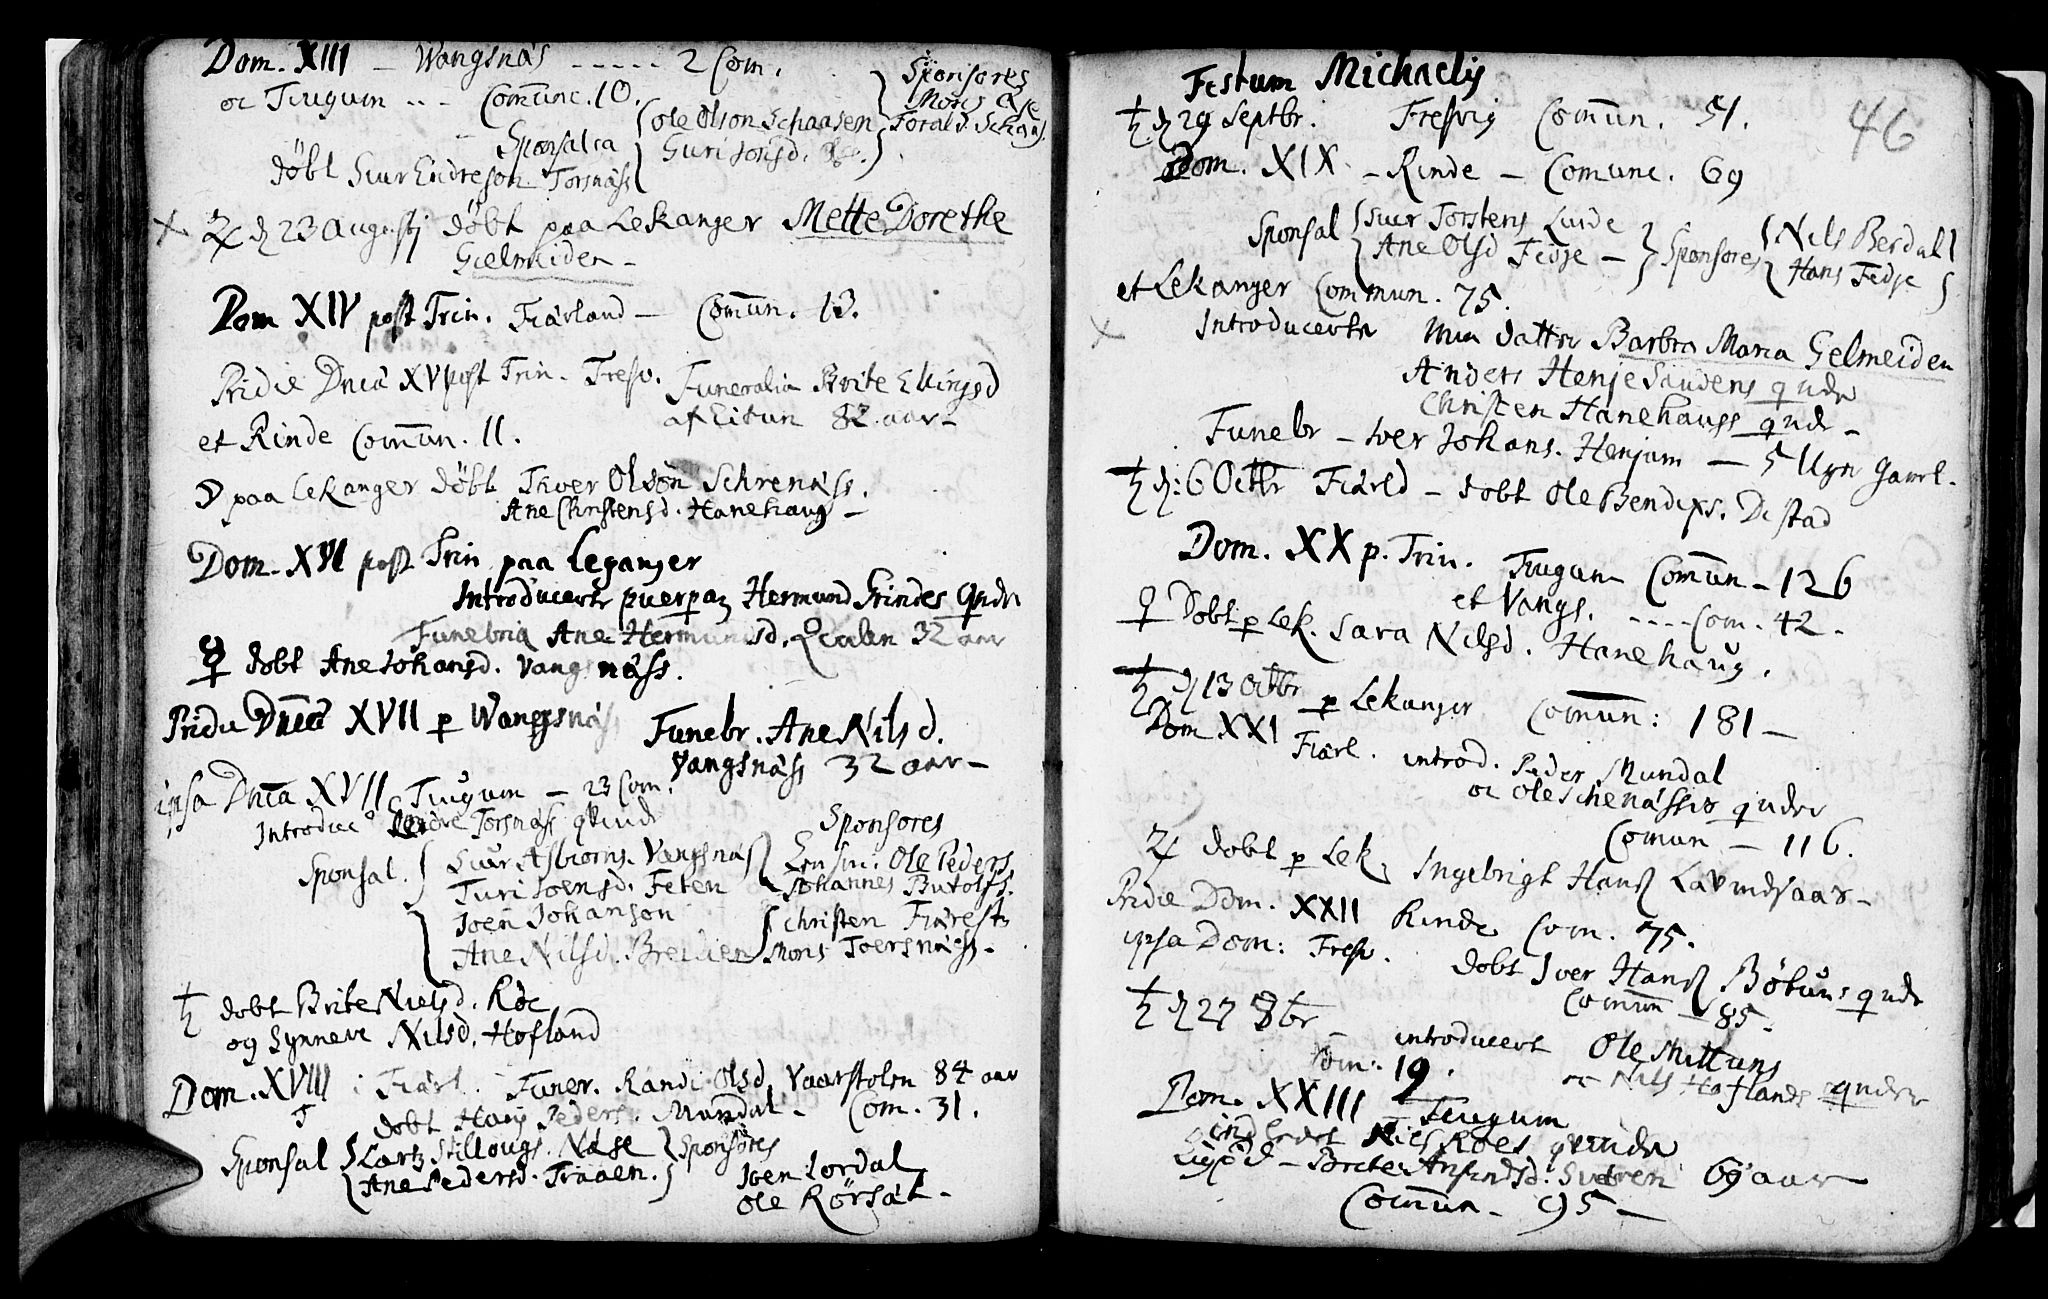 Dom. XIII – Wangsnäs ----- 2 Com.
oc Tiugum -- Comunc. 10.
Sponsalia { Ole Olson Schaasen
Guri Jonsd. } Sponsores
Mons Ase
Torald Schaas.
döbt Siur Endreson Torsnäss
♃ d 23 Augustj döbt paa Lekanger Mette Dorethe
Gielmeiden –
Dom XIV post Trin. Fiärland – Comun. 13.
Pridie Dnica XV post Trin. Fresv. Funeralia Brite Ellingsd
af Eitun 82 aar –
et Rinde Comun. 11.
☽ paa Lekanger döbt Iver Olson Schrenäss.
Ane Christensd. Hanehaug –
Dom. XVI post Trin paa Leganger
Introducerte puerpaz Hermund Grindes qndr
Funebria Ane Hermunsd. Qvalen 32 aar
☿ dobt Ane Johansd. Vangsnäss.
♀
Pridie Dnica XVII p Wangsnäs
Funebr. Ane Nilsd.
Vangsnäss 32 aar –
ipsa Dnica XVII Tiugum – 23 Com.
Introduc Endre Torsnäss qvind
Sponsores
Sponsal. { Siur Asbiorns. Vangsnäs } Ole Peders.
Turi Joensd. Feten Johannes Butolfs.
{ Joen Johanson { Christen Fiærest
Ane Nilsd. Breidien } Mons Toersnäss.
♄ dobt Brite Nielsd. Röe
og Synneve Nilsd. Hofland
Dom. XVIII i Fiärl. Funer. Randi Olsd. Vaarstolen 84 aar
dobt Hans Peders. Mundal – Com. 31.
Sponsal { Lars Stillougs. Näse } Sponsores
Ane Pedersd. Traaen. Joen Lordal
Ole Rörsät –
Festum Michaelis
46
♄ d 29 Septbr. Fresvig Comun. 51.
Dom. XIX – Rinde – Comunc. 69
Sponsal { Siur Torstens Lunde
Ane Olsd Fedje – } Sponsores { Nils Berdal
Hans Fedje }
et Lekanger Commun. 75.
Introducerte min datter Barbra Maria Gelmeiden
Anders Henjesandens qndr
Christen Hanehaugs qndr –
Funebr – Iver Johans. Henjum – 5 Ugr gaml.
♄ d: 6 Octbr Fiärld – dobt Ole Bendixs. Distad
Dom. XX p. Trin. Tiugum Comun – 126
et Vangs. ---- Com. 42.
♀ Dobt p Lek. Sara Nilsd. Hanehaug.
♄ d 13 Octbr p Lekanger Comun: 181 –
Dom XXI Fiärl. introd. Peder Mundal
oc Ole Schenässis qndr
Comun – 116.
♃ dobt p Lek. Ingebrigt Hans Lavindsaar –
Pridie Dom. XXII Rinde Com. 75.
ipsa Dom: Fresv. dobt Iver Hans Bötuns qndr
Comun – 85.
♄ d 27 8br – introducert Ole Nittuns
Com: 19. oc Nils Hoflands qndr
Dom. XXIII Tiugum
indledet Niels Roes qvinde
Ligpd – Brite Arfindsd: Sværen 69 aar
Comun – 95 –